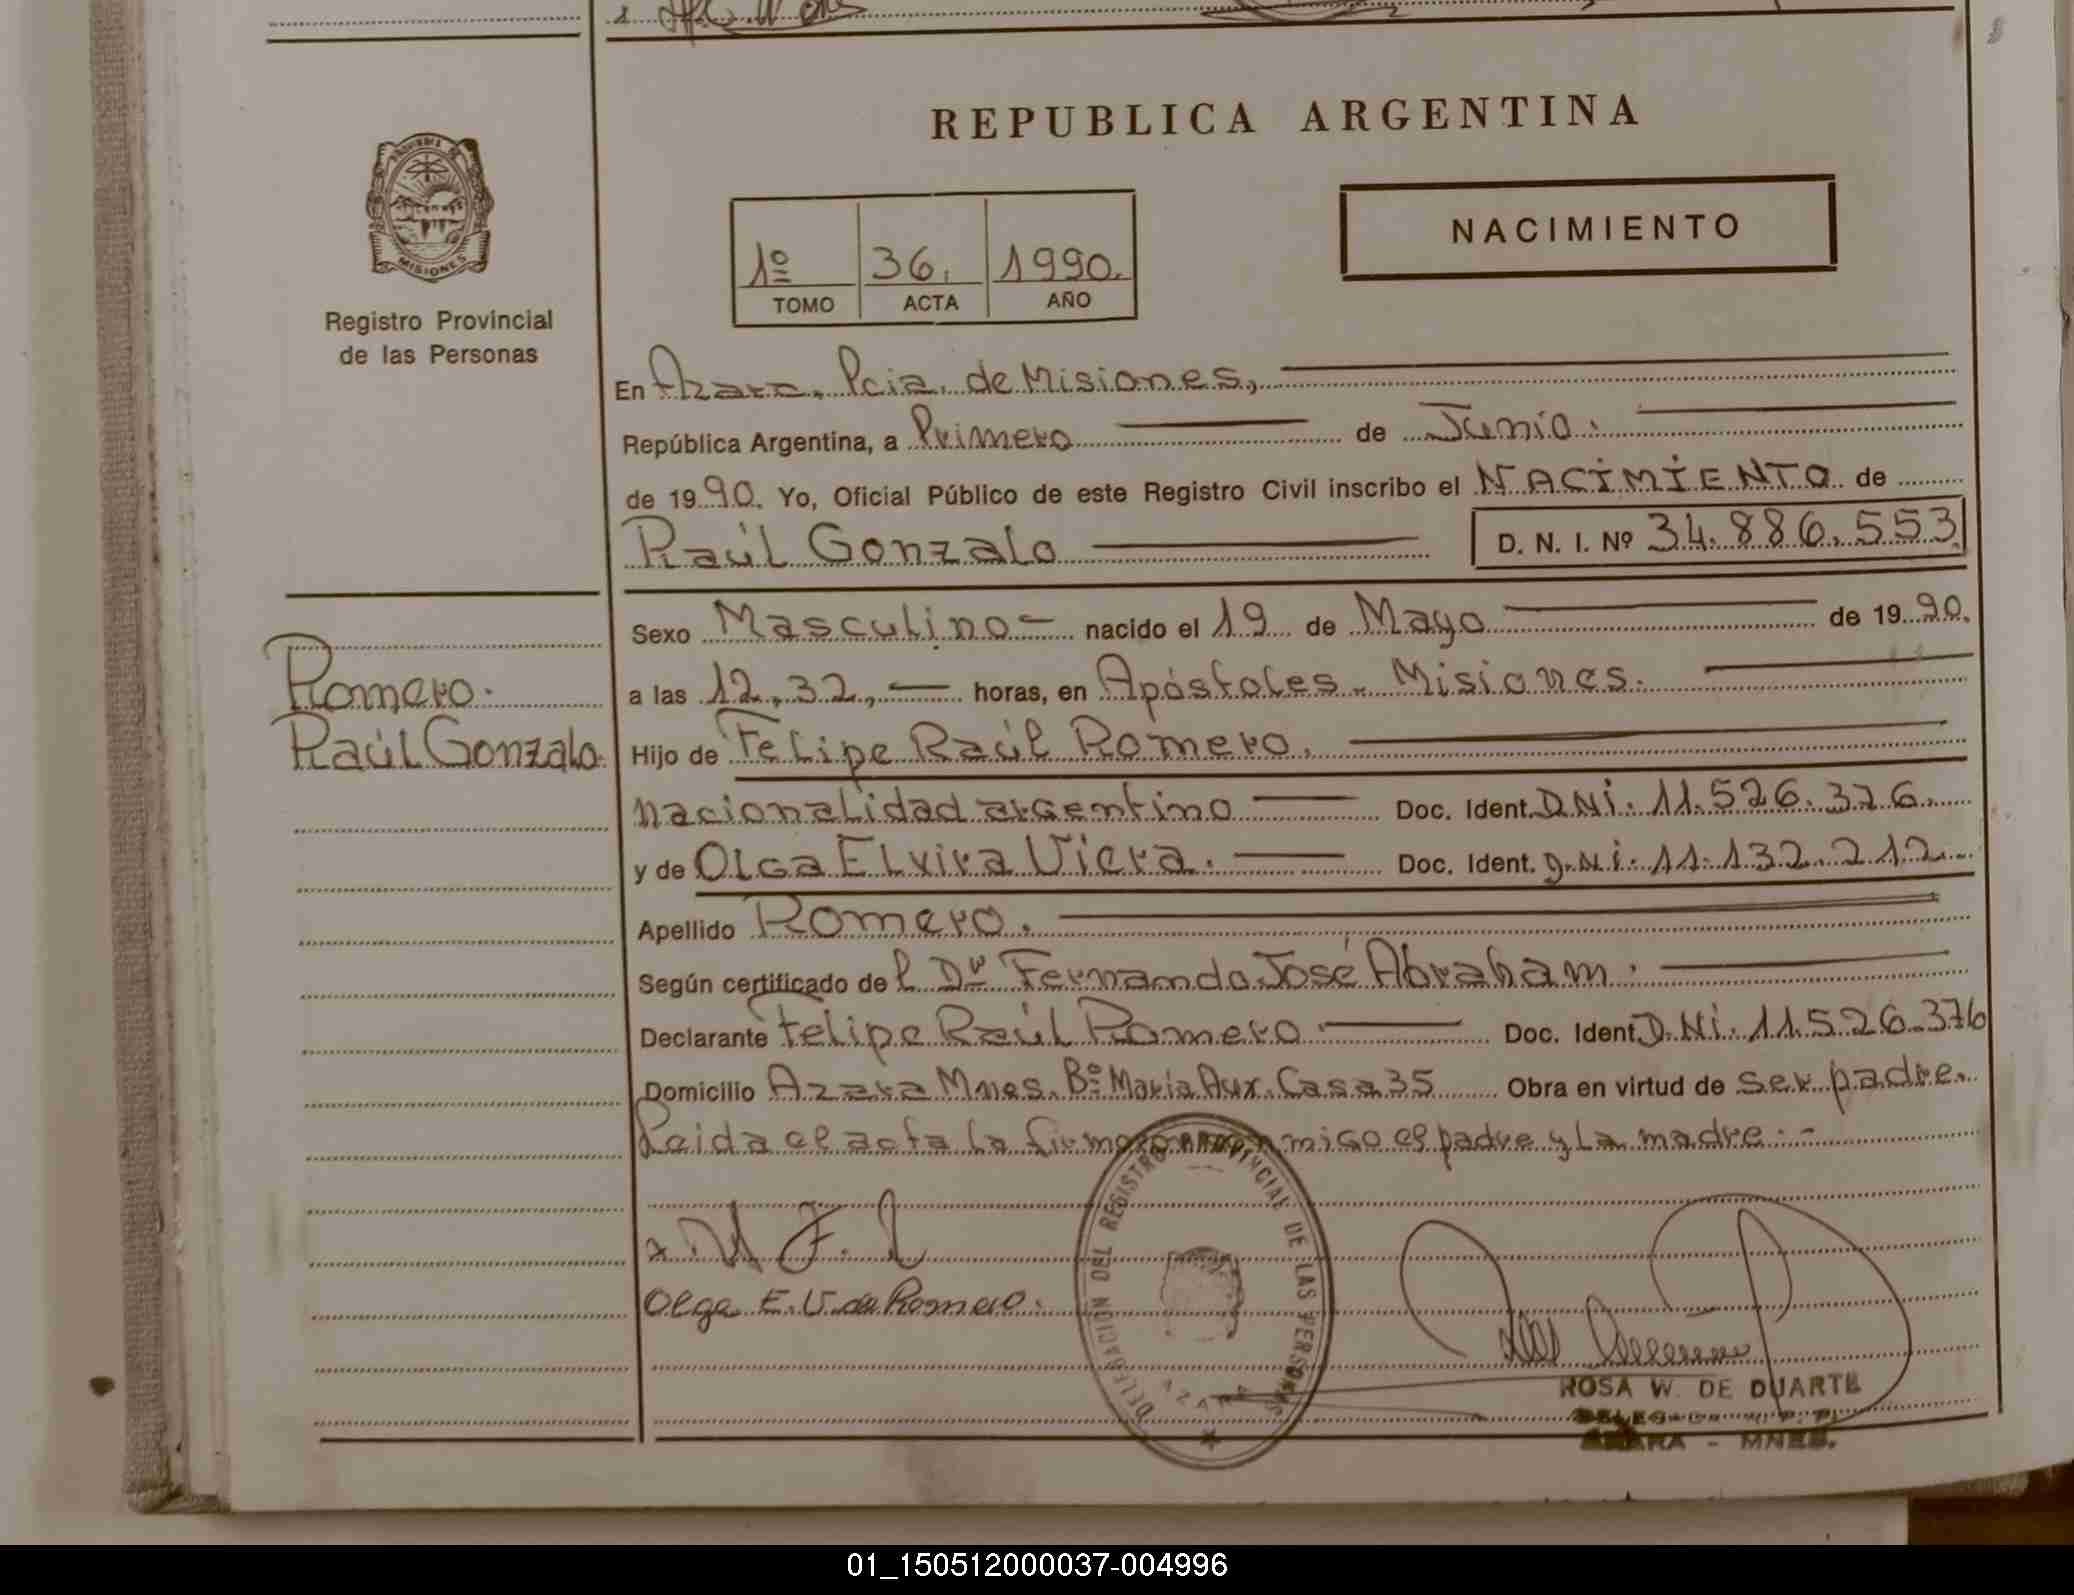 REPUBLICA ARGENTINA
PROVINCIA DE
MISIONES
Registro Provincial
de las Personas
1º 36. 1990.
TOMO ACTA AÑO
NACIMIENTO
En Azara, Pcia. de Misiones,
República Argentina, a Primero de Junio.
de 1990. Yo, Oficial Público de este Registro Civil inscribo el NACIMIENTO de
Raúl Gonzalo D. N. I. Nº 34.886.553
Romero.
Raúl Gonzalo.
Sexo Masculino nacido el 19 de Mayo de 1990.
a las 12,32, horas, en Apóstoles - Misiones.
Hijo de Felipe Raúl Romero,
nacionalidad argentino Doc. Ident. DNI. 11.526.376.
y de Olga Elvira Viera. Doc. Ident. D.NI. 11.132.212.
Apellido Romero.
Según certificado del Dr Fernando José Abraham.
Declarante Felipe Raúl Romero. Doc. Ident. D.NI. 11.526.376
Domicilio Azara Mnes. Bº María Aux. Casa 35 Obra en virtud de ser padre.
Leida el acta la firmaron conmigo el padre y la madre.-
Olga E. V. de Romero.
DELEGACION DEL REGISTRO PROVINCIAL DE LAS PERSONAS
AZARA
ROSA W. DE DUARTE
AZARA - MNES.
01_150512000037-004996